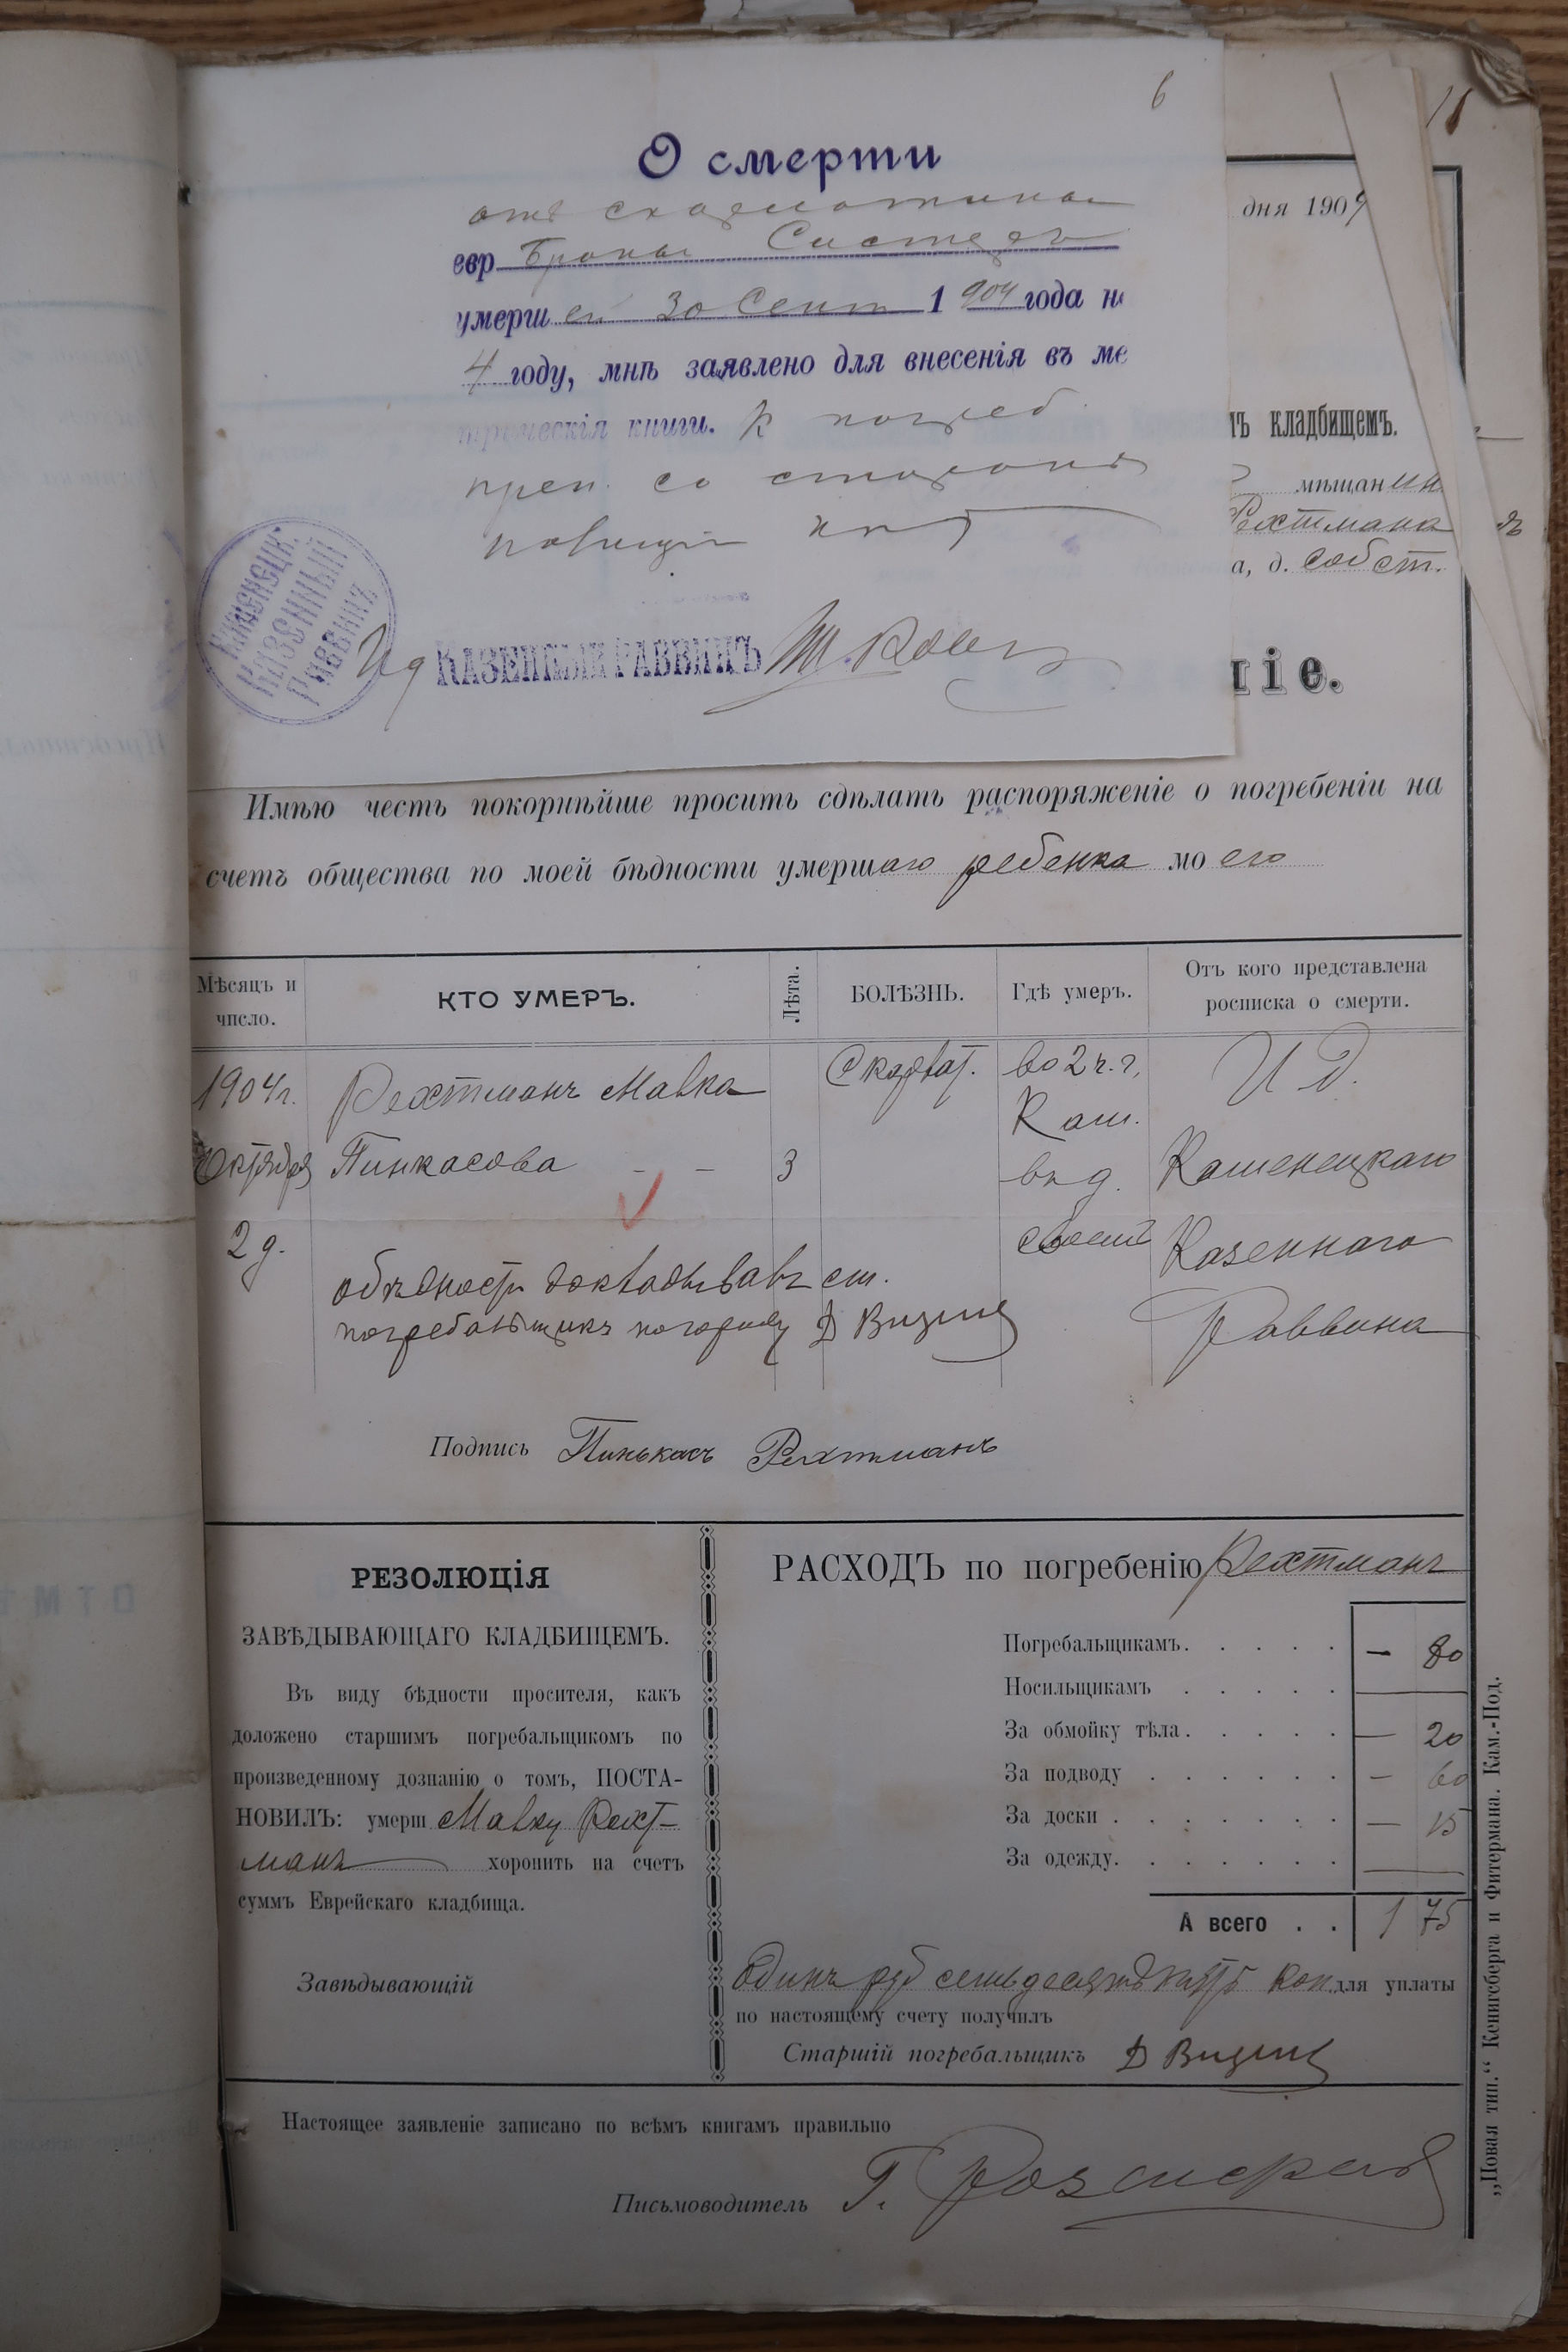 6
О смерти
отъ скарлатины
евр Броны
умерш ей 30 Сент 1904 года на
4 году, мнѣ заявлено для внесенія въ ме
трическія книги. К погреб.
преп. со стороны
полиціи нѣтъ
КАМЕНЕЦК. КАЗЕННЫЙ РАВВИНЪ
И д КАЗЕННЫЙ РАВВИНЪ
дня 1904
мъ кладбищемъ.
мѣщанин
Рехтмана
а, д. собст.
ніе.
Имѣю честь покорнѣйше просить сдѣлать распоряженіе о погребеніи на
счетъ общества по моей бѣдности умершаго ребенка моего
Мѣсяцъ и число.
КТО УМЕРЪ.
Лѣта.
БОЛѢЗНЬ.
Гдѣ умеръ.
Отъ кого представлена росписка о смерти.
1904 г. Рехтманъ Малка Скарлат. во 2 ч. г. И д.
Кам.
Октября Пинкасова - - 3 въ д. Каменецкаго
2 д. своемъ Казеннаго
обѣдности докладывалъ ст. Раввина
погребальщикъ Д
Подпись Пинькасъ Рехтманъ
РЕЗОЛЮЦІЯ
ЗАВѢДЫВАЮЩАГО КЛАДБИЩЕМЪ.
Въ виду бѣдности просителя, какъ
доложено старшимъ погребальщикомъ по
произведенному дознанію о томъ, ПОСТА-
НОВИЛЪ: умерш Малку Рехт-
манъ хоронить на счетъ
суммъ Еврейскаго кладбища.
Завѣдывающій
РАСХОДЪ по погребенію Рехтманъ
Погребальщикамъ. . . . . — 80
Носильщикамъ . . . . .
За обмойку тѣла. . . . . — 20
За подводу . . . . . . — 60
За доски . . . . . . . — 15
За одежду. . . . . . .
А всего . . 1 75
Одинъ руб семьдесятъ пять коп. для уплаты
по настоящему счету получилъ
Старшій погребальщикъ Д
Настоящее заявленіе записано по всѣмъ книгамъ правильно
Письмоводитель Г.
„Новая тип.“ Кенигсберга и Фитермана. Кам.-Под.